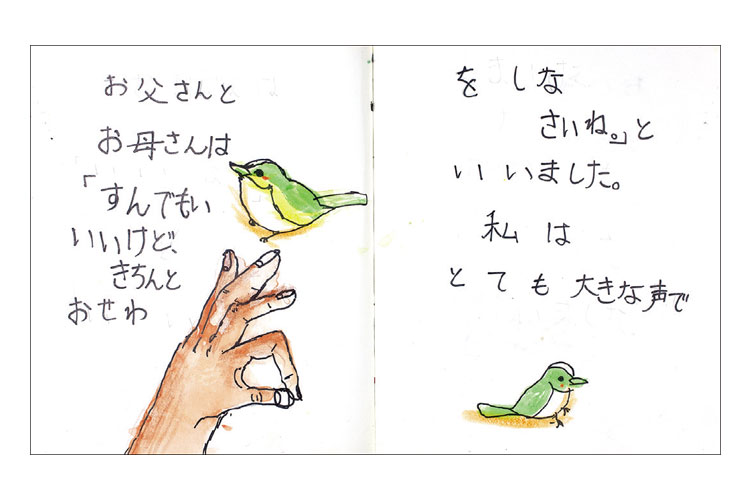 お父さんと
お母さんは
「すんでもい
いいけど、
きちんと
おせわ
をしな
さいね。」と
いいました。
私は
とても大きな声で